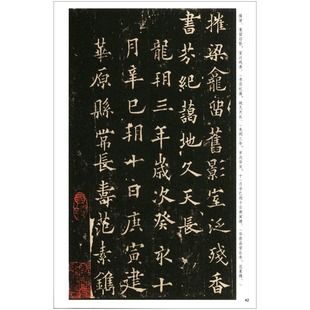 摧梁龕留舊景室泛殘香
書芬紀藹地久天長
龍朔三年歲次癸亥十
月辛巳朔十日庚寅建
華原縣常長壽范素鐫
42